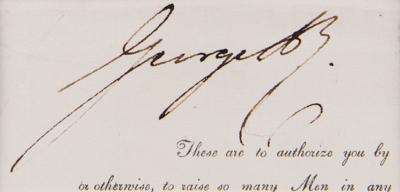 George R.
These are to authorize you by
or otherwise, to raise so many Men in any